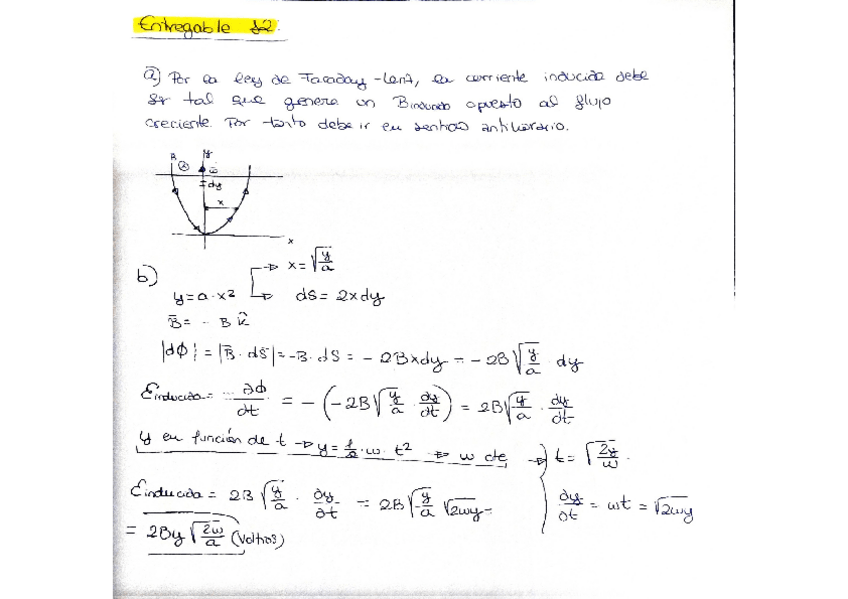 Entregable 12.
a) Por la ley de Faraday-Lenz, la corriente inducida debe
ser tal que genera un Binducido opuesto al flujo
creciente. Por tanto debe ir en sentido antihorario.
B ⊗ y
w
dy
x
x
b) → x = √(y/a)
y = a·x² → dS = 2xdy
B̄ = - B k̂
|dΦ| = |B̄ · dS̄| = -B · dS = - 2Bxdy = - 2B√(y/a) dy
Einducida = - ∂Φ/dt = - (-2B√(y/a) · dy/dt) = 2B√(y/a) · dy/dt
y en función de t → y = 1/2 · w · t² → w cte → t = √(2y/w)
Einducida = 2B √(y/a) · ∂y/∂t = 2B√(y/a) √2wy = ∂y/∂t = wt = √2wy
= 2By √(2w/a) (Voltios)